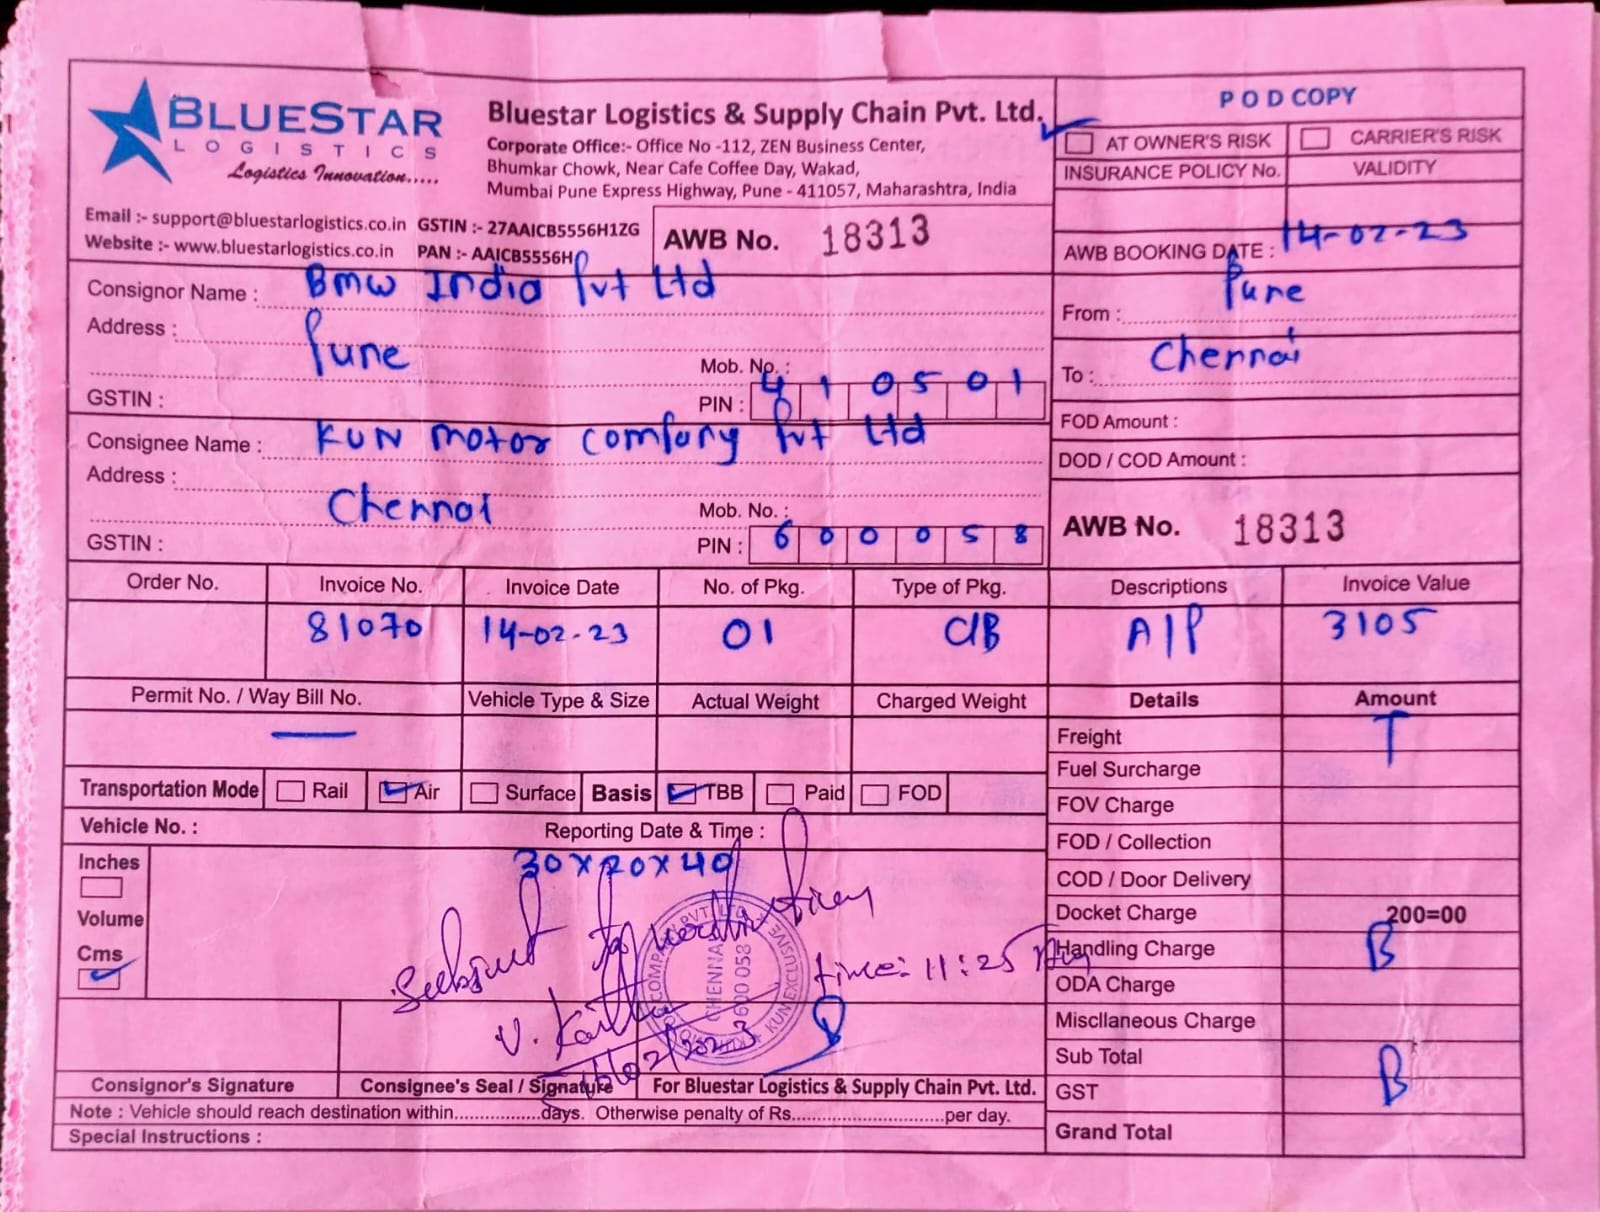 BLUESTAR
LOGISTICS
Logistics Innovation.....
Bluestar Logistics & Supply Chain Pvt. Ltd.
Corporate Office:- Office No -112, ZEN Business Center,
Bhumkar Chowk, Near Cafe Coffee Day, Wakad,
Mumbai Pune Express Highway, Pune - 411057, Maharashtra, India
Email :- support@bluestarlogistics.co.in GSTIN :- 27AAICB5556H1ZG
Website :- www.bluestarlogistics.co.in PAN :- AAICB5556H
AWB No. 18313
POD COPY
AT OWNER'S RISK CARRIER'S RISK
INSURANCE POLICY No. VALIDITY
AWB BOOKING DATE : 14-02-23
From : Pune
To : Chennai
FOD Amount :
DOD / COD Amount :
AWB No. 18313
Consignor Name : BMW India Pvt Ltd
Address :
Pune
Mob. No. :
GSTIN : PIN : 410501
Consignee Name : KUN Motor Company Pvt Ltd
Address :
Chennai
Mob. No. :
GSTIN : PIN : 600058
Order No. Invoice No. Invoice Date No. of Pkg. Type of Pkg. Descriptions Invoice Value
81070 14-02-23 01 C/B A/P 3105
Permit No. / Way Bill No. Vehicle Type & Size Actual Weight Charged Weight Details Amount
—
Freight T
Fuel Surcharge
FOV Charge
FOD / Collection
COD / Door Delivery
Docket Charge 200=00
Handling Charge B
ODA Charge
Miscllaneous Charge
Sub Total
GST B
Grand Total
Transportation Mode Rail Air Surface Basis TBB Paid FOD
Vehicle No. : Reporting Date & Time :
Inches
Volume
Cms
30x20x40
time: 11:25
CHENNAI
600 058
KUN EXCLUSIVE
Consignor's Signature Consignee's Seal / Signature For Bluestar Logistics & Supply Chain Pvt. Ltd.
Note : Vehicle should reach destination within.................days. Otherwise penalty of Rs..............................per day.
Special Instructions :